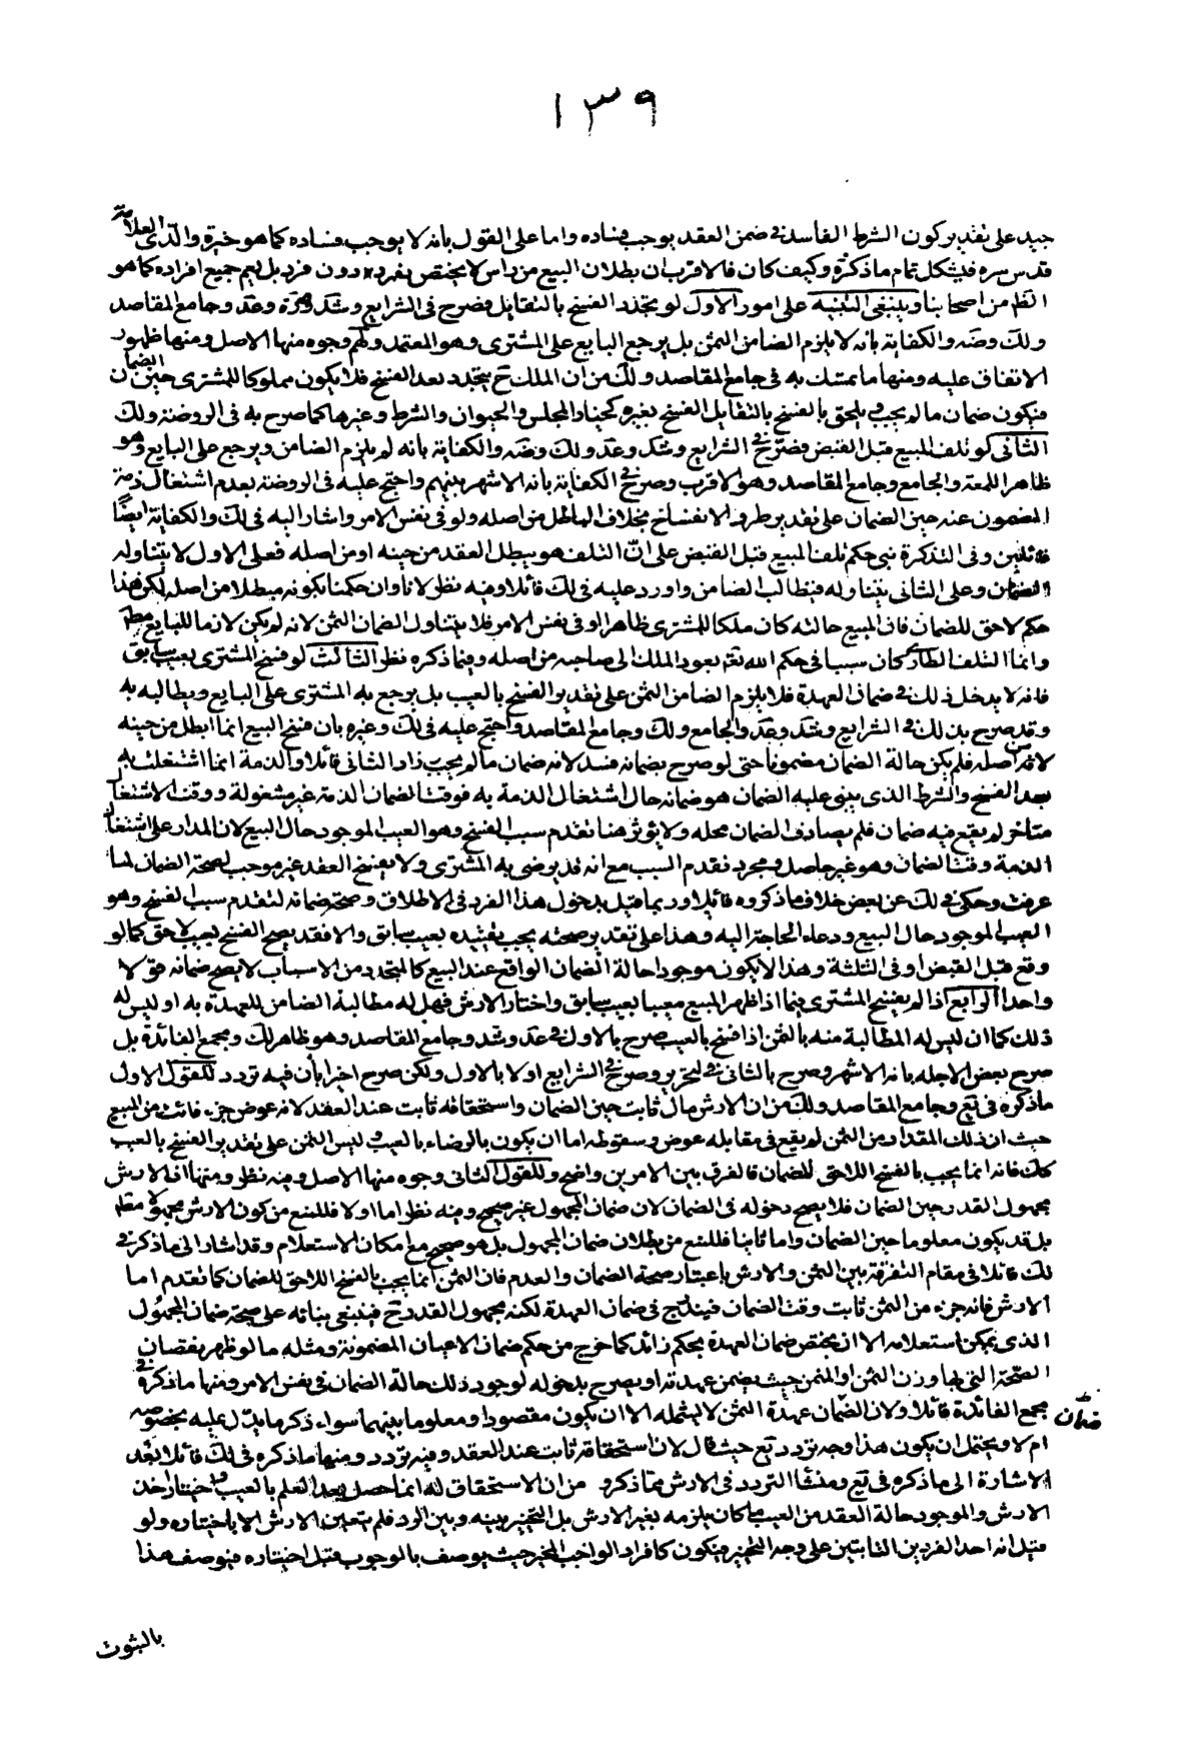 ١٣٩
جيد على تقدير كون الشرط الفاسد في ضمن العقد يوجب فساده واما على القول بانه لا يوجب فساده كما هو خيرة والدى العلامة
قدس سره فيشكل تمام ما ذكرة وكيف كان فالاقرب ان بطلان البيع من راس لا يختص بفرد دون فرد بل يعم جميع افراده كما هو
الظ من اصحابنا وينبغى التنبيه على امور الاول لو تجدد الفسخ بالتقايل فصرح فى الشرايع وشد وكرة وعد وجامع المقاصد
ولك وضه والكفاية بانه لا يلزم الضامن الثمن بل يرجع البايع على المشترى وهو المعتمد ولهم وجوه منها الاصل ومنها ظهور
الاتفاق عليه ومنها ما تمسك به فى جامع المقاصد ولك من ان الملك ح يتجدد بعد الفسخ فلا يكون مملوكا للمشترى حين الضمان
فيكون ضمان ما لم يجب ويلحق بالفسخ بالتقايل الفسخ بغيره كخيار المجلس والحيوان والشرط وغيرها كما صرح به فى الروضة ولك
الثانى لو تلف المبيع قبل القبض فصرح في الشرايع وشد وعد ولك وضه والكفاية بانه لم يلزم الضامن ويرجع على البايع وهو
ظاهر اللمعة والجامع وجامع المقاصد وهو الاقرب وصرح في الكفاية بانه الاشهر بينهم واحتج عليه فى الروضة بعدم اشتغال ذمة
المضمون عنه حين الضمان على تقدير طرو الانفساخ بخلاف الباطل من اصله ولو فى نفس الامر واشار اليه فى لك والكفاية ايضًا
قائلين وفى التذكرة بنى حكم تلف المبيع قبل القبض على انّ التلف هو يبطل العقد من حينه او من اصله فعلى الاول لا يتناوله
الضمان وعلى الثانى يتناوله فيطالب الضامن واورد عليه فى لك قائلا وفيه نظر لانا وان حكمنا بكونه مبطلا من اصله لكن هذا
حكم لاحق للضمان فان المبيع حالته كان ملكا للمشترى ظاهرا وفى نفس الامر فلا يتناول الضمان الثمن لانه لم يكن لازما للبايع مطلقا
وانما التلف الطارى كان سببا فى حكم الله تعم بعود الملك الى صاحبه من اصله وفيما ذكره نظر الثالث لو فسخ المشترى بعيب سابق
فانه لا يدخل ذلك في ضمان العهدة فلا يلزم الضامن الثمن على تقدير الفسخ بالعيب بل يرجع به المشترى على البايع ويطالبه به
وقد صرح بذلك في الشرايع وشد وعد والجامع ولك وجامع المقاصد واحتج عليه فى لك وغيره بان فسخ البيع انما ابطل من حينه
لا من اصله فلم يكن حالة الضمان مضمونا حتى لو صرح بضمانه فسد لانه ضمان ما لم يجب زاد الثانى قائلا والذمة انما اشتغلت به
بعد الفسخ والشرط الذى يبنى عليه الضمان هو ضمانه حال اشتغال الذمة به فوقت الضمان الذمة غير مشغولة ووقت الاشتغال
متاخر لم يقع فيه ضمان فلم يصادف الضمان محله ولا يؤثر هنا تقدم سبب الفسخ وهو العيب الموجود حال البيع لان المدار على اشتغال
الذمة وقت الضمان وهو غير حاصل ومجرد تقدم السبب مع انه قد يرضى به المشترى ولا يفسخ العقد غير موجب لصحة الضمان لما
عرفت وحكى في لك عن بعض خلاف ما ذكروه قائلا وربما قيل بدخول هذا الفرد فى الاطلاق وصحة ضمانه لتقدم سبب الفسخ وهو
العيب الموجود حال البيع ودعاء الحاجة اليه وهذا على تقدير صحته يجب تقييده بعيب سابق والا فقد يصح الفسخ بعيب لاحق كما لو
وقع قبل القبض او فى الثلثة وهذا لا يكون موجودا حالة الضمان الواقع عند البيع كالمتجدد من الاسباب لا يصح ضمانه قولا
واحدا الرابع اذا لم يفسخ المشترى فيما اذا ظهر المبيع معيبا بعيب سابق واختار الارش فهل له مطالبة الضامن للعهدة به او ليس له
ذلك كما ان ليس له المطالبة منه بالثمن اذا فسخ بالعيب صرح بالاول في عد وشد وجامع المقاصد وهو ظاهر لك ومجمع الفائدة بل
صرح بعض الاجله بانه الاشهر وصرح بالثانى في التحرير وصرح في الشرايع اولا بالاول ولكن صرح اخيرا بأن فيه تردد للقول الاول
ما ذكره فى يع وجامع المقاصد ولك من ان الارش مال ثابت حين الضمان واستحقاقه ثابت عند العقد لانه عوض جزء فائت من المبيع
حيث ان ذلك المقدار من الثمن لم يقع فى مقابله عوض وسقوطه اما ان يكون بالرضاء بالعيب وليس الثمن على تقدير الفسخ بالعيب
كك فانه انما يجب بالفسخ اللاحق للضمان فالفرق بين الامرين واضح وللقول الثانى وجوه منها الاصل وفيه نظر ومنها ان الارش
مجهول القدر حين الضمان فلا يصح دخوله فى الضمان لان ضمان المجهول غير صحيح وفيه نظر اما اولا فللمنع من كون الارش مجهولا مطلقا
بل قد يكون معلوما حين الضمان واما ثانيا فللمنع من بطلان ضمان المجهول بل هو صحيح مع امكان الاستعلام وقد اشار الى ما ذكر في
لك قائلا فى مقام التفرقة بين الثمن والارش باعتبار صحة الضمان والعدم فان الثمن انما يجب بالفسخ اللاحق للضمان كما تقدم اما
الارش فانه جزء من الثمن ثابت وقت الضمان فيندرج فى ضمان العهدة لكنه مجهول القدر ح فينبغى بنائه على صحة ضمان المجهول
الذى يمكن استعلامه الا ان يختص ضمان العهدة بحكم زائد كما خرج من حكم ضمان الاعيان المضمونة ومثله ما لو ظهر نقصان
الصحة التى بها وزن الثمن او المثمن حيث يضمن عهدته او يصرح بدخوله لوجود ذلك حالة الضمان فى نفس الامر ومنها ما ذكره في
مجمع الفائدة قائلا ولان الضمان عهدة الثمن لا يشمله الا ان يكون مقصودا ومعلوما بينهما سواء ذكر ما يدل عليه بخصوصه
ضمان
ام لا ويحتمل ان يكون هذا وجه تردد يع حيث قال لان استحقاقه ثابت عند العقد وفيه تردد ومنها ما ذكره فى لك قائلا بعد
الاشارة الى ما ذكره فى يع ومنشأ التردد فى الارش مما ذكر ومن ان الاستحقاق له انما حصل بعد العلم بالعيب واختيار اخذ
الارش والموجود حالة العقد من العيب ما كان يلزمه تغير الارش بل التخيير بينه وبين الرد فلم يتعين الارش الا باختياره ولو
قيل انه احد الفردين الثابتين على وجه التخيير فيكون كافراد الواجب المخير حيث يوصف بالوجوب قبل اختياره فيوصف هذا
بالثبوت